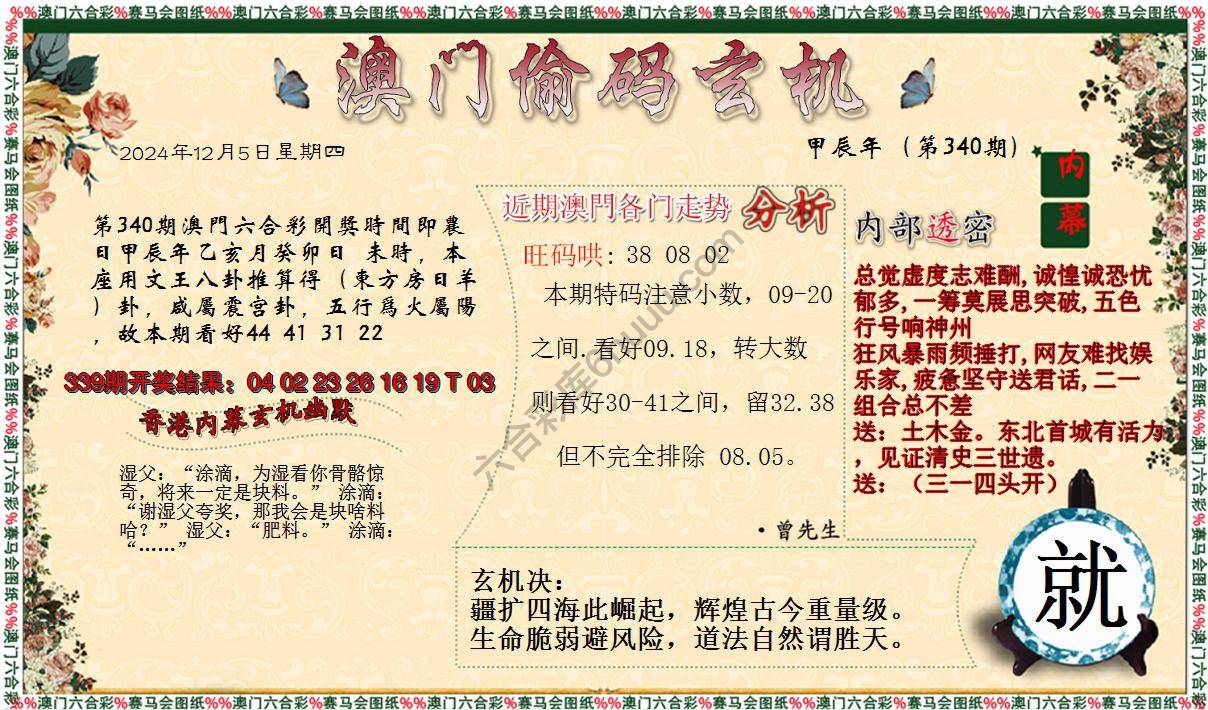 %%澳门六合彩%赛马会图纸%%澳门六合彩%赛马会图纸%%澳门六合彩%赛马会图纸%%澳门六合彩%赛马会图纸%%澳门六合彩%赛马会图纸%%澳门六合彩%赛马会图纸%%
澳门偷码玄机
2024年12月5日星期四
甲辰年（第340期）
内
幕
第340期澳門六合彩開獎時間即農
日甲辰年乙亥月癸卯日 未時，本
座用文王八卦推算得（東方房日羊
）卦，咸屬震宫卦，五行爲火屬陽
，故本期看好44 41 31 22
339期开奖结果：04 02 23 26 16 19 T 03
香港内幕玄机幽默
湿父：“涂滴，为湿看你骨骼惊
奇，将来一定是块料。” 涂滴：
“谢湿父夸奖，那我会是块啥料
哈？” 湿父：“肥料。” 涂滴：
“……”
近期澳門各门走势 分析
旺码哄: 38 08 02
本期特码注意小数，09-20
之间.看好09.18，转大数
则看好30-41之间，留32.38
但不完全排除 08.05。
·曾先生
内部透密
总觉虚度志难酬,诚惶诚恐忧
郁多,一筹莫展思突破,五色
行号响神州
狂风暴雨频捶打,网友难找娱
乐家,疲惫坚守送君话,二一
组合总不差
送：土木金。东北首城有活力
，见证清史三世遗。
送：（三一四头开）
玄机决：
疆扩四海此崛起，辉煌古今重量级。
生命脆弱避风险，道法自然谓胜天。
就
%%澳门六合彩%赛马会图纸%%澳门六合彩%赛马会图纸%%澳门六合彩%赛马会图纸%%澳门六合彩%赛马会图纸%%澳门六合彩%赛马会图纸%%澳门六合彩%赛马会图纸%%